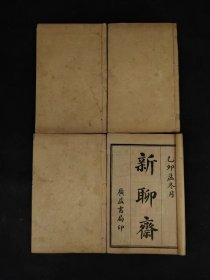 乙卯孟冬月
新聊齋
廣益書局印